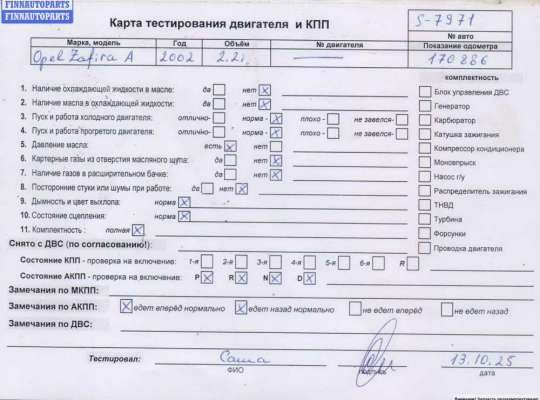 FINNAUTOPARTS
FINNAUTOPARTS
Карта тестирования двигателя и КПП
S-7971
№ авто
Марка, модель Год Объём № двигателя Показание одометра
Opel Zafira A 2002 2.2i — 170 886
комплектность
1. Наличие охлаждающей жидкости в масле: да нет X
Блок управления ДВС
2. Наличие масла в охлаждающей жидкости: да нет X
Генератор
3. Пуск и работа холодного двигателя: отлично- норма - X плохо - не завелся-
Карбюратор
4. Пуск и работа прогретого двигателя: отлично- норма - X плохо - не завелся-
Катушка зажигания
5. Давление масла: есть X нет
Компрессор кондиционера
6. Картерные газы из отверстия масляного щупа: да нет X
Моновпрыск
7. Наличие газов в расширительном бачке: да нет X
Насос г/у
8. Посторонние стуки или шумы при работе: да нет X
Распределитель зажигания
9. Дымность и цвет выхлопа: норма X
ТНВД
10. Состояние сцепления: норма X
Турбина
11. Комплектность : полная X
Форсунки
Снято с ДВС (по согласованию!):
Проводка двигателя
Состояние КПП - проверка на включение: 1-я 2-я 3-я 4-я 5-я 6-я R
Состояние АКПП - проверка на включение: P X R X N X D X
Замечания по МКПП:
Замечания по АКПП: X едет вперёд нормально X едет назад нормально не едет вперед не едет назад
Замечания по ДВС:
Тестировал: Саша 13.10.25
ФИО подпись дата